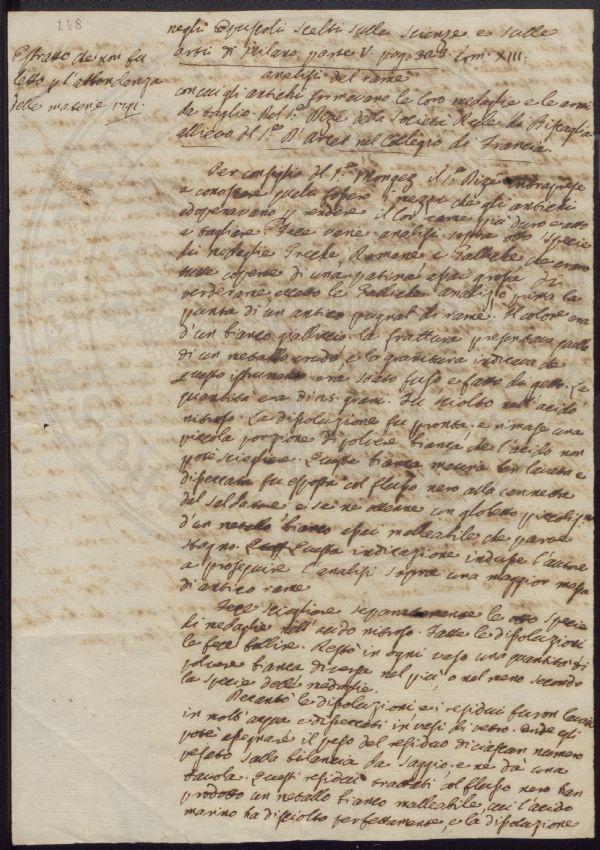 148
Estratto che non fu
letto p l'abbondanza
delle materie
negli Opuscoli scelti sulle scienze e sulle
arti di Milano parte V. pag. 323. Tom. XIII.
analisi del rame
con cui gli antichi formavano le loro medaglie e le armi
da taglio. Del Sr. Dizé della Società Reale di Biscaglia
allievo del Sr. D'Arcet nel Collegio di Francia.
Per consiglio del Sr. Mongez il Sr. Dizé intraprese
a conoscere quale fossero i mezzi che gli antichi
adoperavano p rendere il lor rame più duro e atto
a tagliare. Fece varie analisi sopra otto specie
di medaglie Greche, Romane e Galliche che erano
tutte coperte di una patina assai grossa di
verderame, eccetto le Galliche. analizzò prima la
punta di un antico pugnal di rame. Il colore era
d'un bianco gialliccio. la frattura presentava quella
di un metallo crudo, e la granitura indicava che
questo istrumento era stato fuso e fatto di getto. La
quantità era di 25. grani. Fu sciolto nell'acido
nitroso. La dissoluzione fu pronta. e rimase una
piccola porzione di polvere bianca che l'acido non
potè sciogliere. Questa bianca materia ben lavata e
disseccata fu esposta col flusso nero alla cannetta
dal saldatore e se ne ottenne un globetto
d'un metallo bianco assai malleabile che parve
stagno. Questa indicazione indusse l'autore
a proseguire l'analisi sopra una maggior massa
di antico rame
Fece sciogliere separatamente le otto specie
di medaglie nell'acido nitroso. Fatte le dissoluzioni
le fece bollire. Restò in ogni vaso una quantità di
polvere bianca diversa nel più, o nel meno secondo
la specie delle medaglie.
Decantò le dissoluzioni e i residui furon lavati
in molt'acqua e disseccati in vasi di vetro. onde egli
potè assegnare il peso del residuo di ciascun numero
pesato sulla bilancia da saggio, e ne dà una
tavola. Questi residui trattati col flusso nero han
prodotto un metallo bianco malleabile, cui l'acido
marino ha disciolto perfettamente, e la dissoluzione